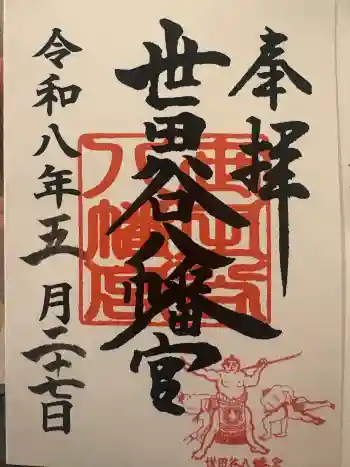 奉拝
世田谷八幡宮
令和八年五月二十七日
世田谷八幡宮
世田谷八幡宮